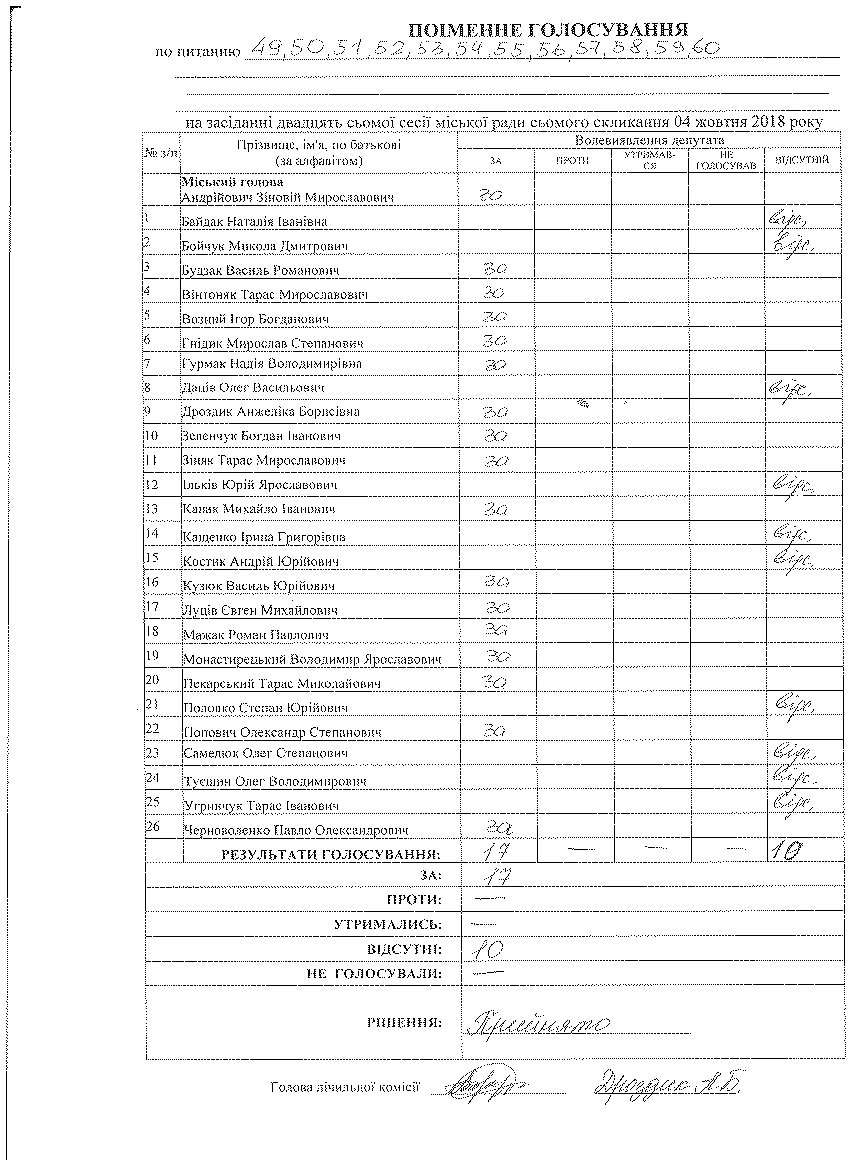 ПОІМЕННЕ ГОЛОСУВАННЯ
по питанню 49,50,51,52,53,54,55,56,57,58,59,60
на засіданні двадцять сьомої сесії міської ради сьомого скликання 04 жовтня 2018 року
№ з/п Прізвище, ім'я, по батькові (за алфавітом) Волевиявлення депутата
ЗА ПРОТИ УТРИМАВ-СЯ НЕ ГОЛОСУВАВ ВІДСУТНІЙ
Міський голова
Андрійович Зіновій Мирославович за
1 Байдак Наталія Іванівна відс.
2 Бойчук Микола Дмитрович відс.
3 Будзак Василь Романович за
4 Вінтоняк Тарас Мирославович за
5 Возний Ігор Богданович за
6 Гнідик Мирослав Степанович за
7 Гурмак Надія Володимирівна за
8 Даців Олег Васильович відс.
9 Дроздик Анжеліка Борисівна за
10 Зеленчук Богдан Іванович за
11 Зіняк Тарас Мирославович за
12 Ільків Юрій Ярославович відс.
13 Капак Михайло Іванович за
14 Кащенко Ірина Григорівна відс.
15 Костик Андрій Юрійович відс.
16 Кузюк Василь Юрійович за
17 Луців Євген Михайлович за
18 Мажак Роман Павлович за
19 Монастирецький Володимир Ярославович за
20 Пекарський Тарас Миколайович за
21 Поповко Степан Юрійович відс.
22 Попович Олександр Степанович за
23 Самелюк Олег Степанович відс.
24 Туєшин Олег Володимирович відс.
25 Угринчук Тарас Іванович відс.
26 Черноволенко Павло Олександрович за
РЕЗУЛЬТАТИ ГОЛОСУВАННЯ: 17 — — — 10
ЗА: 17
ПРОТИ: —
УТРИМАЛИСЬ: —
ВІДСУТНІ: 10
НЕ ГОЛОСУВАЛИ: —
РІШЕННЯ: Прийнято
Голова лічильної комісії Дроздик А.Б.